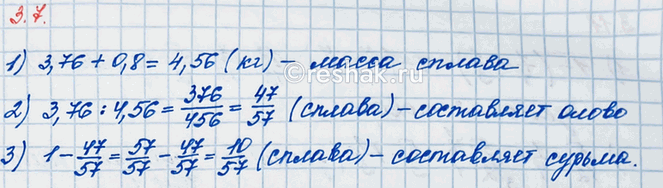 3.7.
1) 3,76 + 0,8 = 4,56 (кг) – масса сплава
2) 3,76 : 4,56 = 376/456 = 47/57 (сплава) – составляет олово
3) 1 – 47/57 = 57/57 – 47/57 = 10/57 (сплава) – составляет сурьма.
reshak.ru